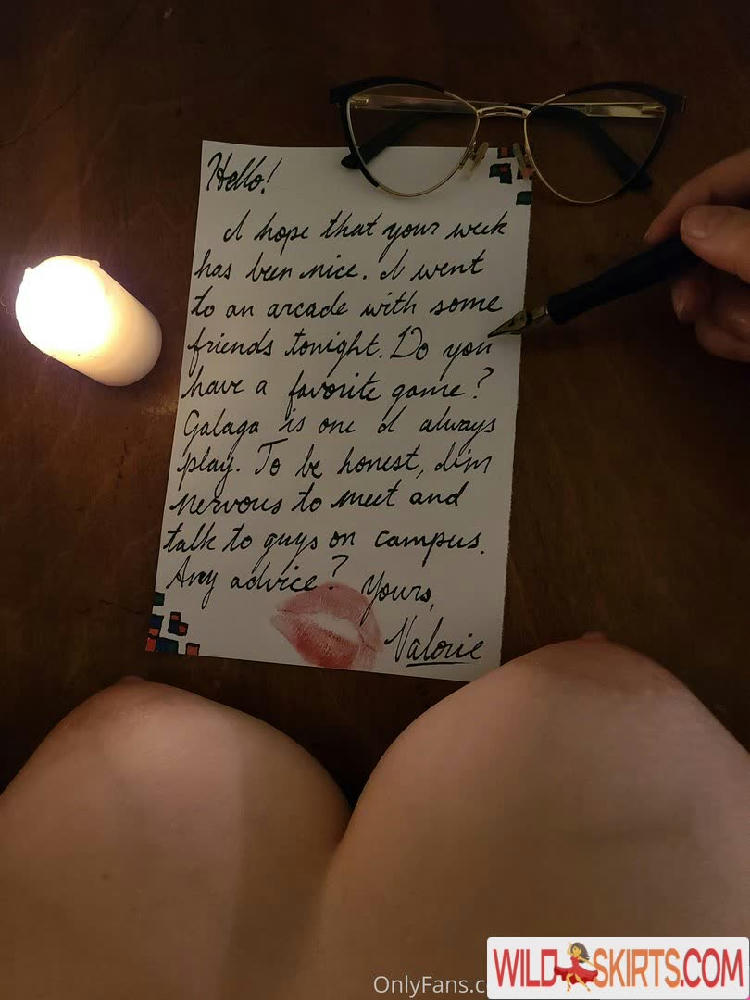 Hello!
I hope that your week
has been nice. I went
to an arcade with some
friends tonight. Do you
have a favorite game?
Galaga is one I always
play. To be honest, I'm
nervous to meet and
talk to guys on campus.
Any advice? Yours,
Valorie
OnlyFans.c
WILDSKIRTS.COM